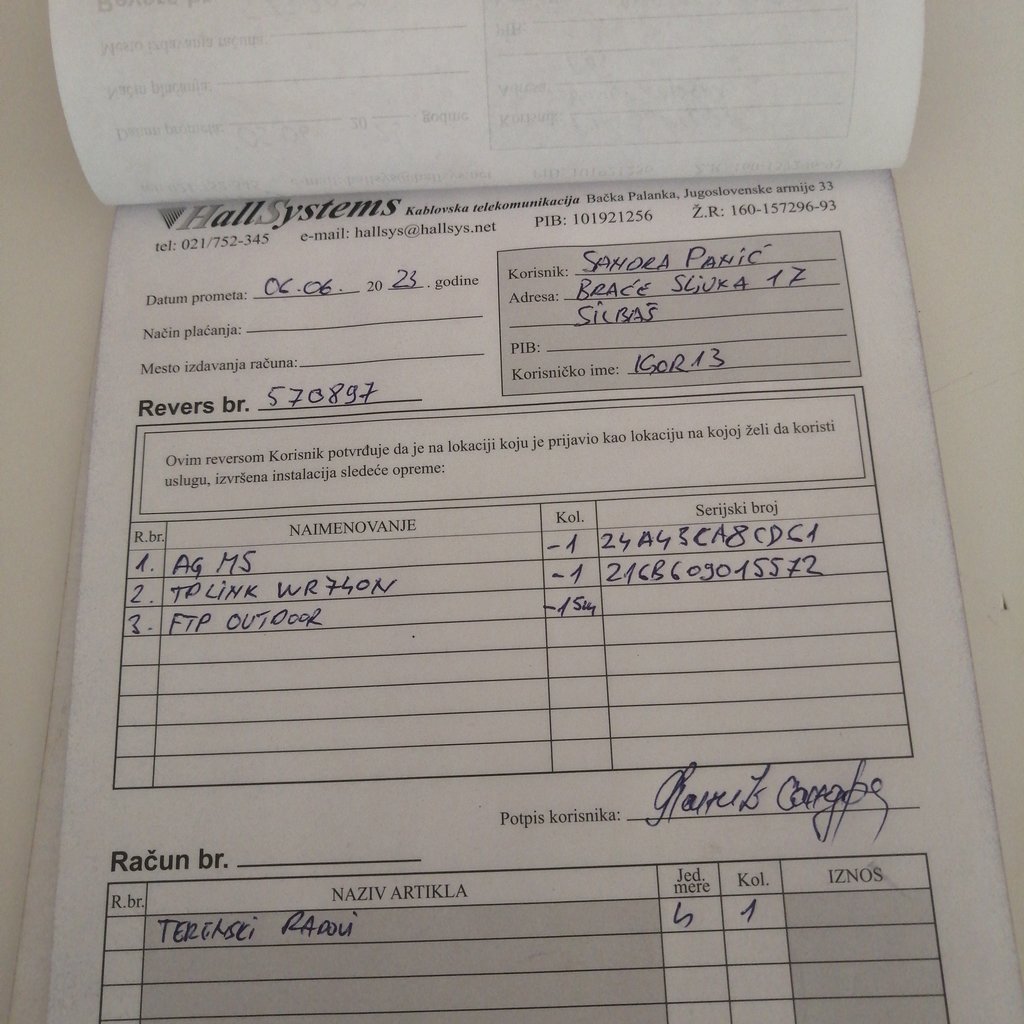 HallSystems Kablovska telekomunikacija Bačka Palanka, Jugoslovenske armije 33
tel: 021/752-345 e-mail: hallsys@hallsys.net PIB: 101921256 Ž.R: 160-157296-93
Datum prometa: 06.06. 20 23. godine
Način plaćanja:
Mesto izdavanja računa:
Korisnik: SANDRA PANIĆ
Adresa: BRAĆE SLIVKA 17
SILBAŠ
PIB:
Korisničko ime: IGOR13
Revers br. 570897
Ovim reversom Korisnik potvrđuje da je na lokaciji koju je prijavio kao lokaciju na kojoj želi da koristi
uslugu, izvršena instalacija sledeće opreme:
R.br. NAIMENOVANJE Kol. Serijski broj
1. AG M5 -1 24A43CA8CDC1
2. TP LINK WR740N -1 216B609015572
3. FTP OUTDOOR -15m
Potpis korisnika: Панић Сандра
Račun br.
R.br. NAZIV ARTIKLA Jed. mere Kol. IZNOS
TERENSKI RADOVI h 1